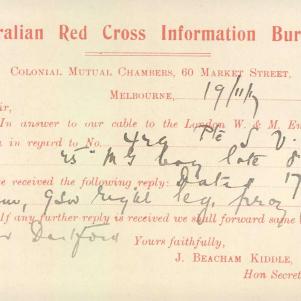 ralian Red Cross Information Bur
Colonial Mutual Chambers, 60 Market Street,
Melbourne, 19/11/17
ir,
In answer to our cable to the London W. & M. En
in regard to No. 429 Pte J. V.
45" M G Coy late
ve received the following reply: Dated 17
GSW right leg,
If any further reply is received we shall forward same
Dartford Yours faithfully,
J. Beacham Kiddle,
Hon Secre